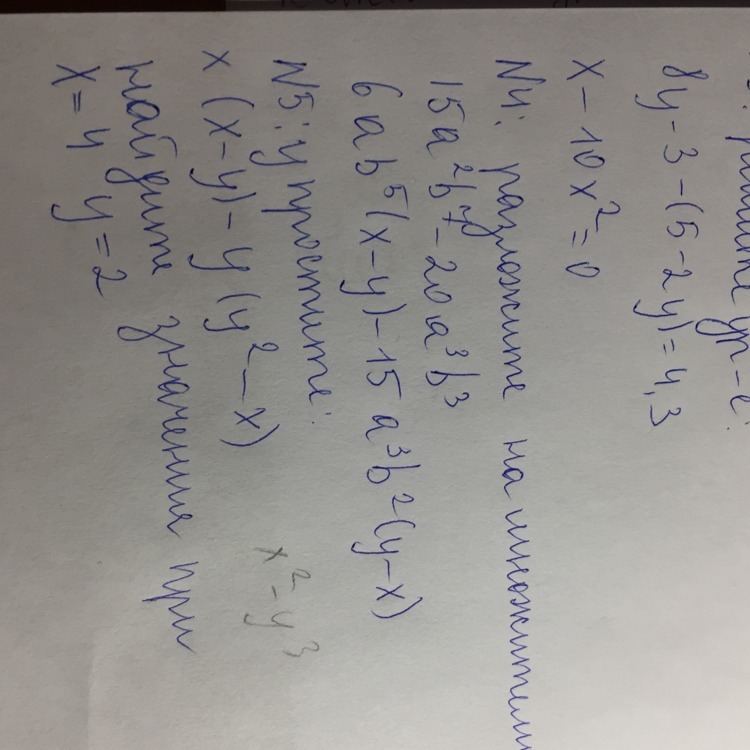 решите ур-е:
8y - 3 - (5 - 2y) = 4,3
x - 10x² = 0
N4: разложите на множители
15a²b⁷ - 20a³b³
6ab⁵(x-y) - 15a³b²(y-x)
N5: упростите:
x(x-y) - y(y²-x)
x² - y³
найдите значение при
x = 4 y = 2